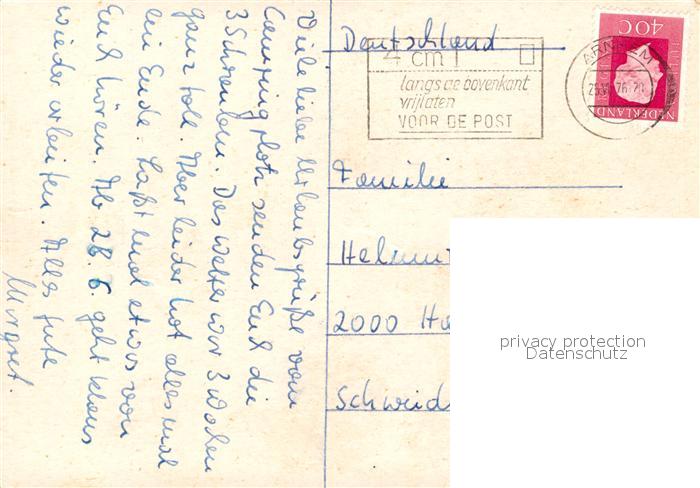 Viele liebe Urlaubsgrüße vom
Campingplatz senden Euch die
3 Schrauben. Das Wetter war 3 Wochen
ganz toll. Aber leider hat alles mal
ein Ende. Laßt mal etwas von
Euch hören. Ab 28.6. geht Klaus
wieder arbeiten. Alles Gute
Margret.
Deutschland
4 cm
langs de bovenkant
vrijlaten
VOOR DE POST
ARNHEM
40C
NEDERLAND
Familie
Helmut
2000 Ha
Schweid
privacy protection
Datenschutz